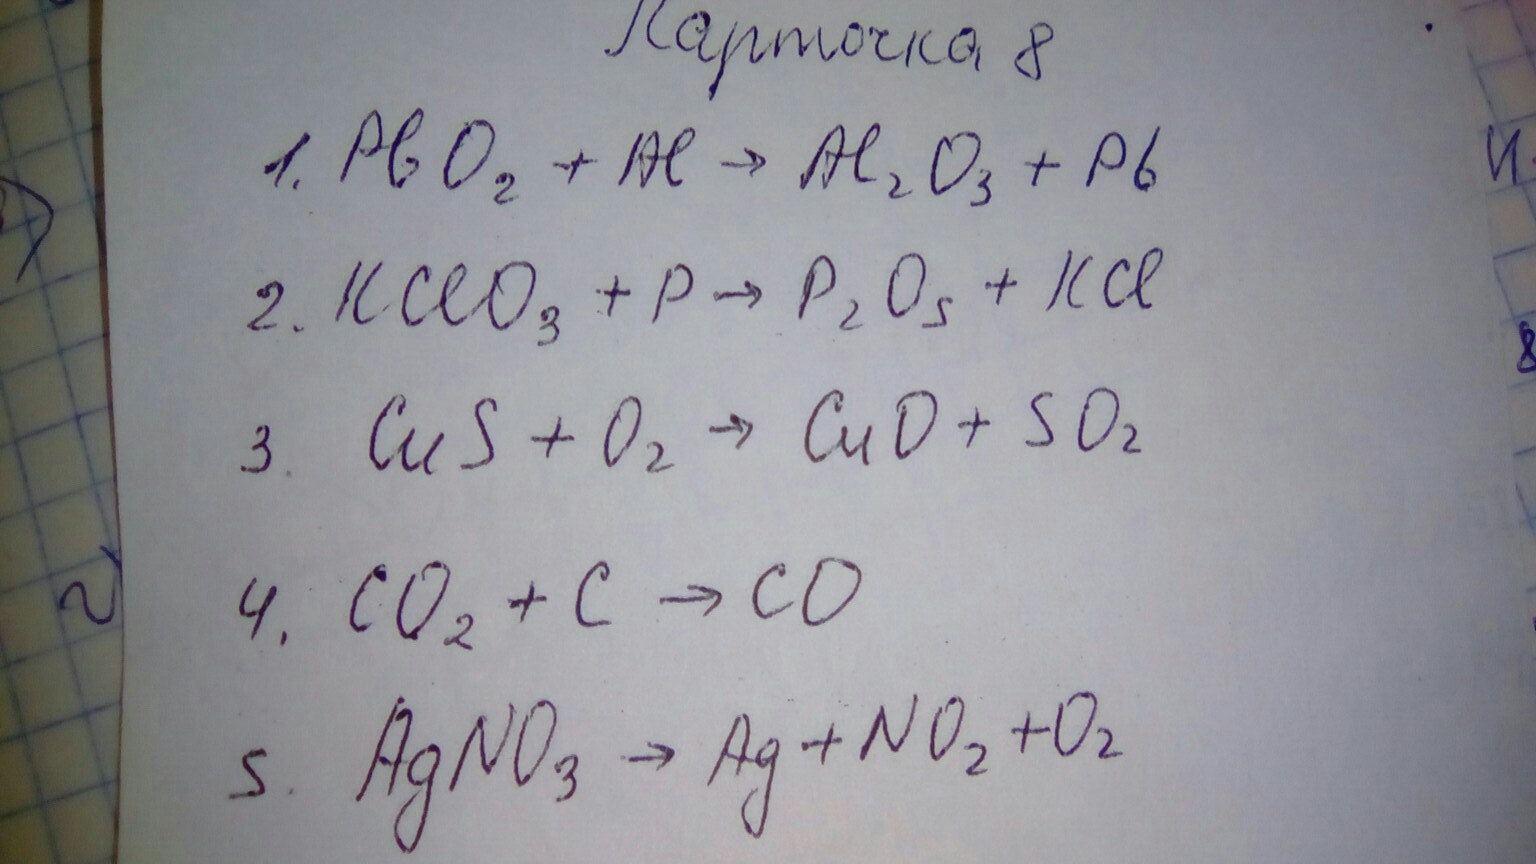 Карточка 8
1. PbO₂ + Al → Al₂O₃ + Pb
2. KClO₃ + P → P₂O₅ + KCl
3. CuS + O₂ → CuO + SO₂
4. CO₂ + C → CO
5. AgNO₃ → Ag + NO₂ + O₂